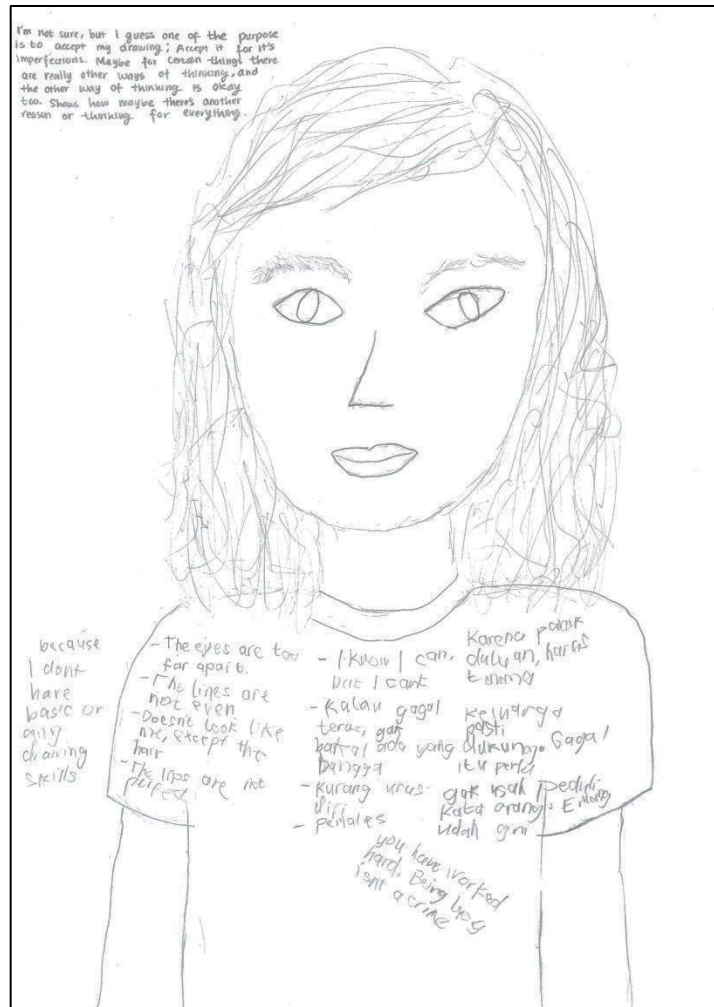 I'm not sure, but I guess one of the purpose
is to accept my drawing; Accept it for it's
imperfections. Maybe for certain things there
are really other ways of thinking, and
the other way of thinking is okay
too. Shows how maybe there's another
reason or thinking for everything.
because
I dont
have
basic or
any
drawing
skills
- The eyes are too
far apart.
- The lines are
not even
- Doesn't look like
me, except the
hair
- The lips are not
perfect
- I know I can,
but I cant
- Kalau gagal
terus, gak
bakal ada yang
bangga
- kurang urus
diri
- pemales
Karena panik
duluan, harus
Keluarga
pasti
dukung. Gagal
itu perlu
gak usah peduli
kata orang. Emang
udah gini
you have worked
hard. Being lazy
isnt a crime